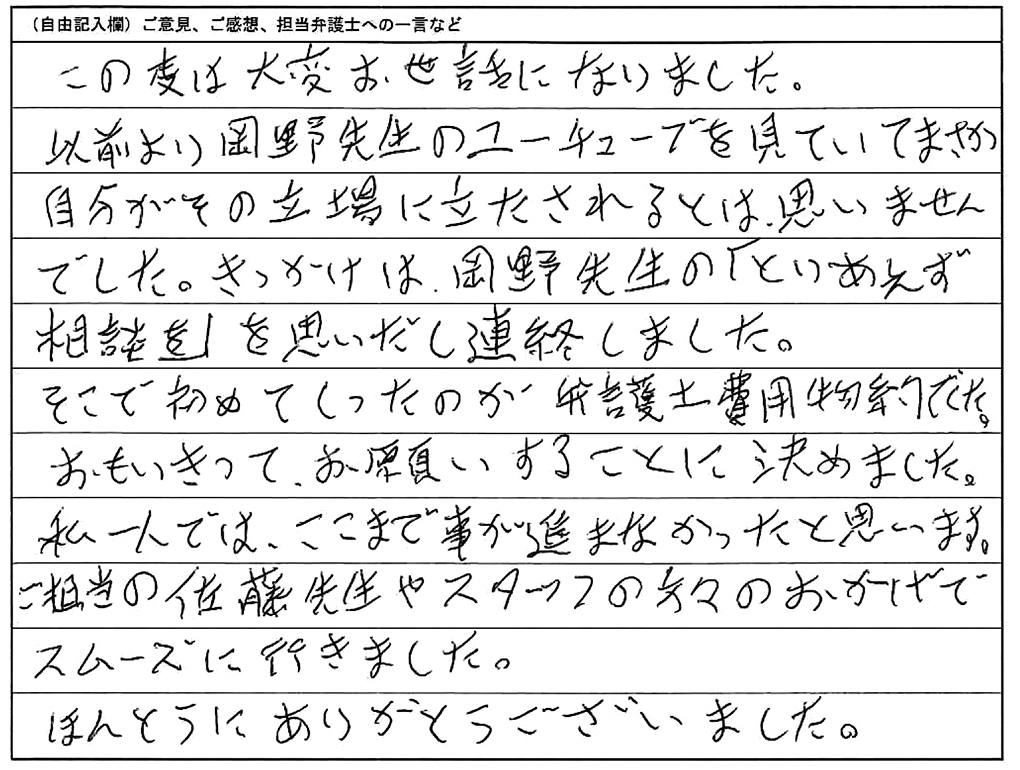 （自由記入欄）ご意見、ご感想、担当弁護士への一言など
この度は大変お世話になりました。
以前より岡野先生のユーチューブを見ていてまさか
自分がその立場に立たされるとは、思いません
でした。きっかけは、岡野先生の「とりあえず
相談を」を思いだし連絡しました。
そこで初めてしったのが弁護士費用特約でした。
おもいきって、お願いすることに決めました。
私一人では、ここまで事が進まなかったと思います。
ご担当の佐藤先生やスタッフの方々のおかげで
スムーズに行きました。
ほんとうにありがとうございました。